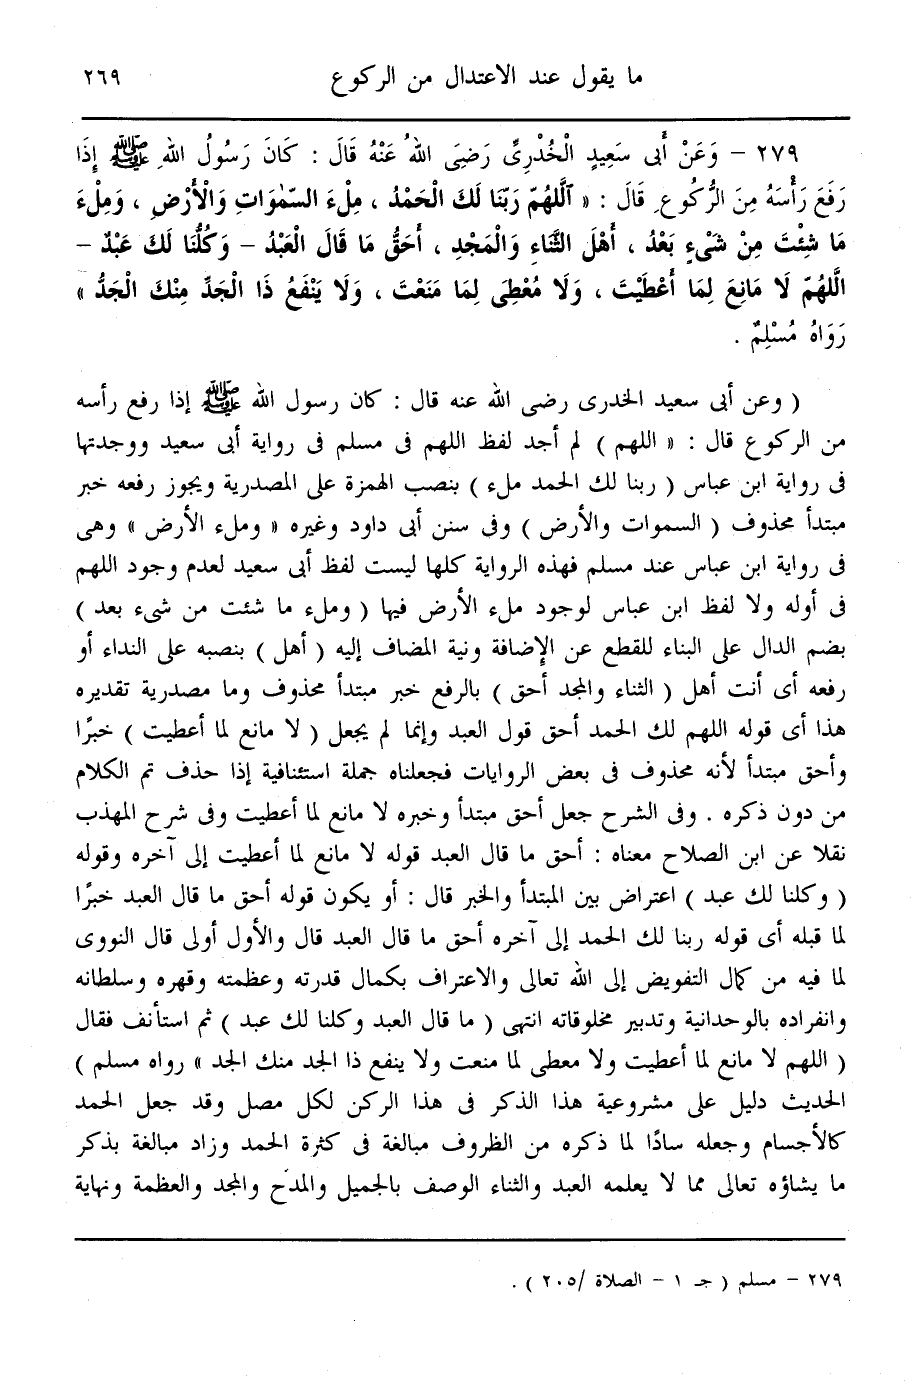 ما يقول عند الاعتدال من الركوع ٢٦٩
٢٧٩ – وَعَنْ أَبى سَعِيدٍ الْخُدْرِىِّ رَضِىَ اللهُ عَنْهُ قَالَ : كَانَ رَسُولُ اللهِ ﷺ إِذَا
رَفَعَ رَأْسَهُ مِنَ الرُّكُوعِ قَالَ : « اَللَّهُمّ رَبّنَا لَكَ الْحَمْدُ ، مِلْءَ السّمٰوَاتِ وَالْأَرْضِ ، وَمِلْءَ
مَا شِئْتَ مِنْ شَىْءٍ بَعْدُ ، أَهْلَ الثَّنَاءِ وَالْمَجْدِ ، أَحَقُّ مَا قَالَ الْعَبْدُ – وَكُلُّنَا لَكَ عَبْدٌ –
اللَّهُمّ لَا مَانِعَ لِمَا أَعْطَيْتَ ، وَلَا مُعْطِىَ لِمَا مَنَعْتَ ، وَلَا يَنْفَعُ ذَا الْجَدِّ مِنْكَ الْجَدُّ »
رَوَاهُ مُسْلِمٌ .
( وعن أبى سعيد الخدرى رضى الله عنه قال : كان رسول الله ﷺ إذا رفع رأسه
من الركوع قال : « اللهم ) لم أجد لفظ اللهم فى مسلم فى رواية أبى سعيد ووجدتها
فى رواية ابن عباس ( ربنا لك الحمد ملء ) بنصب الهمزة على المصدرية ويجوز رفعه خبر
مبتدأ محذوف ( السموات والأرض ) وفى سنن أبى داود وغيره « وملء الأرض » وهى
فى رواية ابن عباس عند مسلم فهذه الرواية كلها ليست لفظ أبى سعيد لعدم وجود اللهم
فى أوله ولا لفظ ابن عباس لوجود ملء الأرض فيها ( وملء ما شئت من شىء بعد )
بضم الدال على البناء للقطع عن الإضافة ونية المضاف إليه ( أهل ) بنصبه على النداء أو
رفعه أى أنت أهل ( الثناء والمجد أحق ) بالرفع خبر مبتدأ محذوف وما مصدرية تقديره
هذا أى قوله اللهم لك الحمد أحق قول العبد وإنما لم يجعل ( لا مانع لما أعطيت ) خبرًا
وأحق مبتدأ لأنه محذوف فى بعض الروايات فجعلناه جملة استئنافية إذا حذف تم الكلام
من دون ذكره . وفى الشرح جعل أحق مبتدأ وخبره لا مانع لما أعطيت وفى شرح المهذب
نقلا عن ابن الصلاح معناه : أحق ما قال العبد قوله لا مانع لما أعطيت إلى آخره وقوله
( وكلنا لك عبد ) اعتراض بين المبتدأ والخبر قال : أو يكون قوله أحق ما قال العبد خبرًا
لما قبله أى قوله ربنا لك الحمد إلى آخره أحق ما قال العبد قال والأول أولى قال النووى
لما فيه من كمال التفويض إلى الله تعالى والاعتراف بكمال قدرته وعظمته وقهره وسلطانه
وانفراده بالوحدانية وتدبير مخلوقاته انتهى ( ما قال العبد وكلنا لك عبد ) ثم استأنف فقال
( اللهم لا مانع لما أعطيت ولا معطى لما منعت ولا ينفع ذا الجد منك الجد » رواه مسلم )
الحديث دليل على مشروعية هذا الذكر فى هذا الركن لكل مصل وقد جعل الحمد
كالأجسام وجعله سادًا لما ذكره من الظروف مبالغة فى كثرة الحمد وزاد مبالغة بذكر
ما يشاؤه تعالى مما لا يعلمه العبد والثناء الوصف بالجميل والمدح والمجد والعظمة ونهاية
٢٧٩ – مسلم ( جـ ١ – الصلاة /٢٠٥ ) .